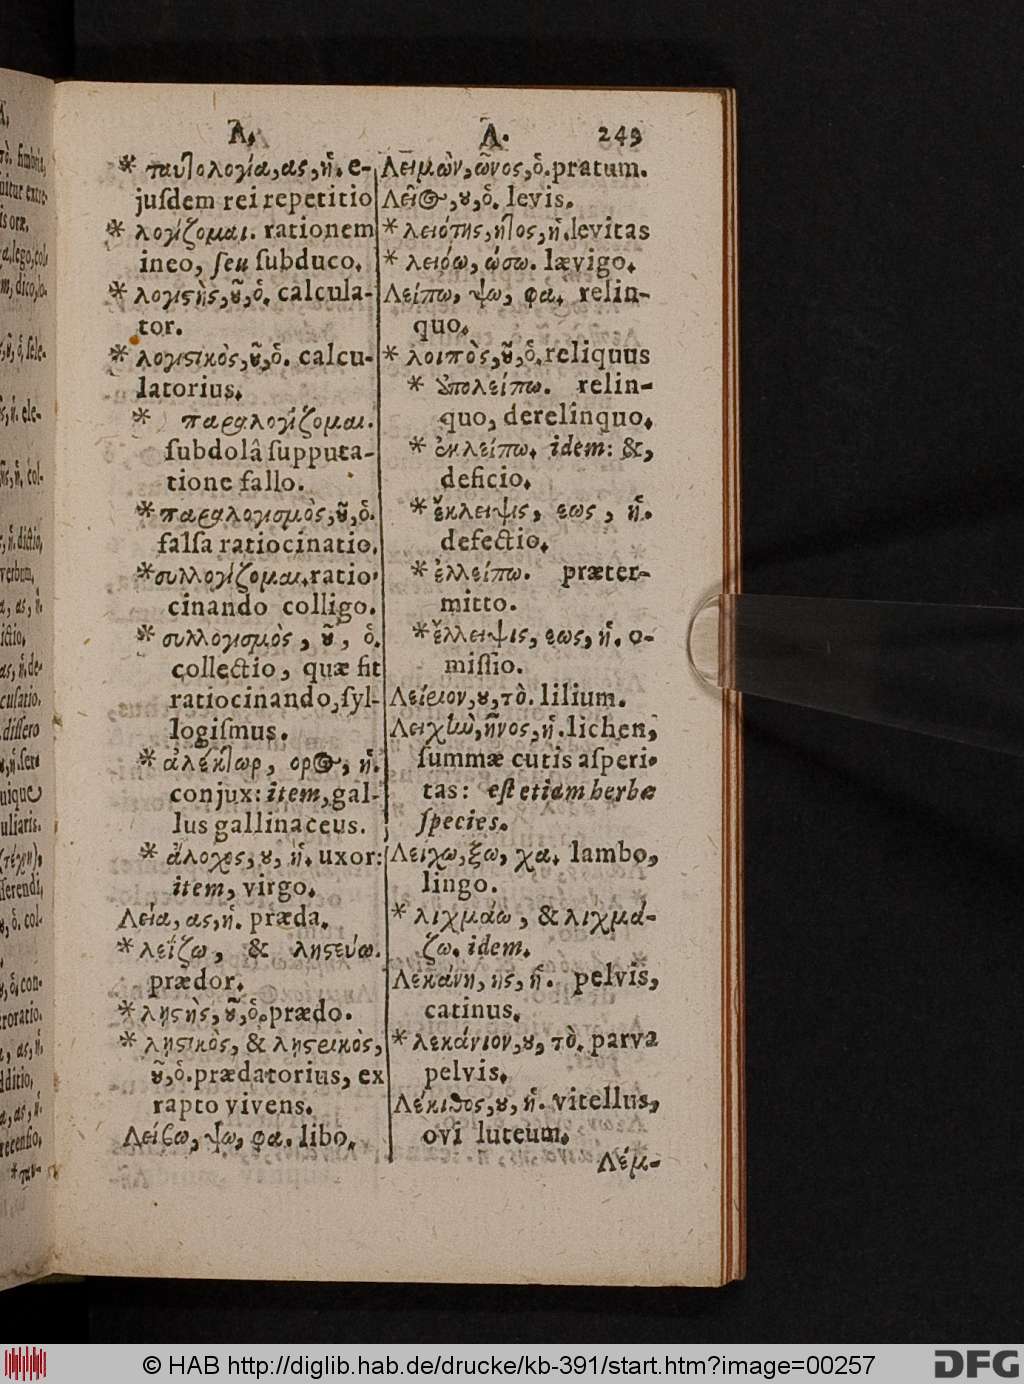 Λ.
* ταυτολογία, ας, ἡ. e-
jusdem rei repetitio
* λογίζομαι. rationem
ineo, seu subduco.
* λογιστὴς, οῦ, ὁ. calcula-
tor.
* λογιστικὸς, οῦ, ὁ. calcu-
latorius.
* παραλογίζομαι.
subdolâ supputa-
tione fallo.
* παραλογισμὸς, οῦ, ὁ.
falsa ratiocinatio.
* συλλογίζομαι. ratio-
cinando colligo.
* συλλογισμὸς, οῦ, ὁ.
collectio, quæ fit
ratiocinando, syl-
logismus.
* ἀλέκτωρ, ορος, ἡ.
conjux: item, gal-
lus gallinaceus.
* ἄλοχος, ου, ἡ. uxor:
item, virgo.
Λεία, ας, ἡ. præda.
* λείζω, & ληστεύω.
prædor.
* ληστὴς, οῦ, ὁ. prædo.
* λῃστικὸς, & λῃστρικὸς,
οῦ, ὁ. prædatorius, ex
rapto vivens.
Λείβω, ψω, φα. libo.
Λ. 249
Λειμὼν, ῶνος, ὁ. pratum.
Λεῖος, ου, ὁ. levis.
* λειότης, ητος, ἡ. levitas
* λειόω, ώσω. lævigo.
Λείπω, ψω, φα. relin-
quo.
* λοιπὸς, οῦ, ὁ. reliquus
* ὑπολείπω. relin-
quo, derelinquo.
* ἐκλείπω. idem: &,
deficio.
* ἔκλειψις, εως, ἡ.
defectio.
* ἐλλείπω. præter-
mitto.
* ἔλλειψις, εως, ἡ. o-
missio.
Λείριον, ου, τὸ. lilium.
Λειχὴν, ῆνος, ἡ. lichen,
summæ cutis asperi-
tas: est etiam herbæ
species.
Λείχω, ξω, χα. lambo,
lingo.
* λιχμάω, & λιχμά-
ζω. idem.
Λεκάνη, ης, ἡ. pelvis,
catinus.
* λεκάνιον, ου, τὸ. parva
pelvis.
Λέκιθος, ου, ἡ. vitellus,
ovi luteum.
Λέμ-
© HAB http://diglib.hab.de/drucke/kb-391/start.htm?image=00257
DFG